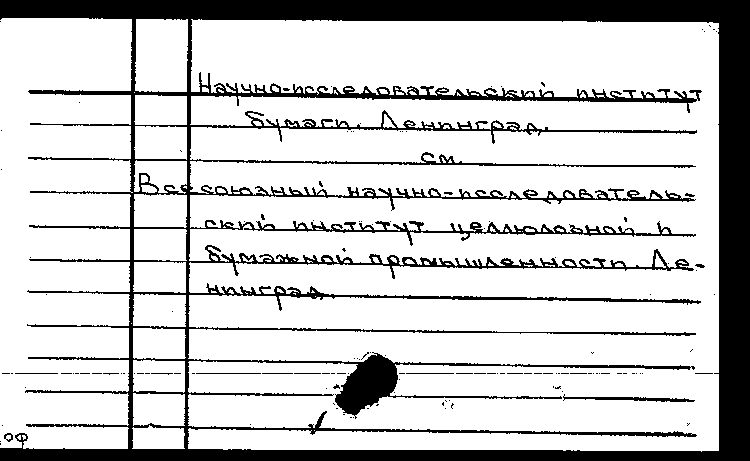 Научно-исследовательский институт
бумаги. Ленинград.
см.
Всесоюзный научно-исследователь-
ский институт целлюлозной и
бумажной промышленности. Ле-
нинград
оф